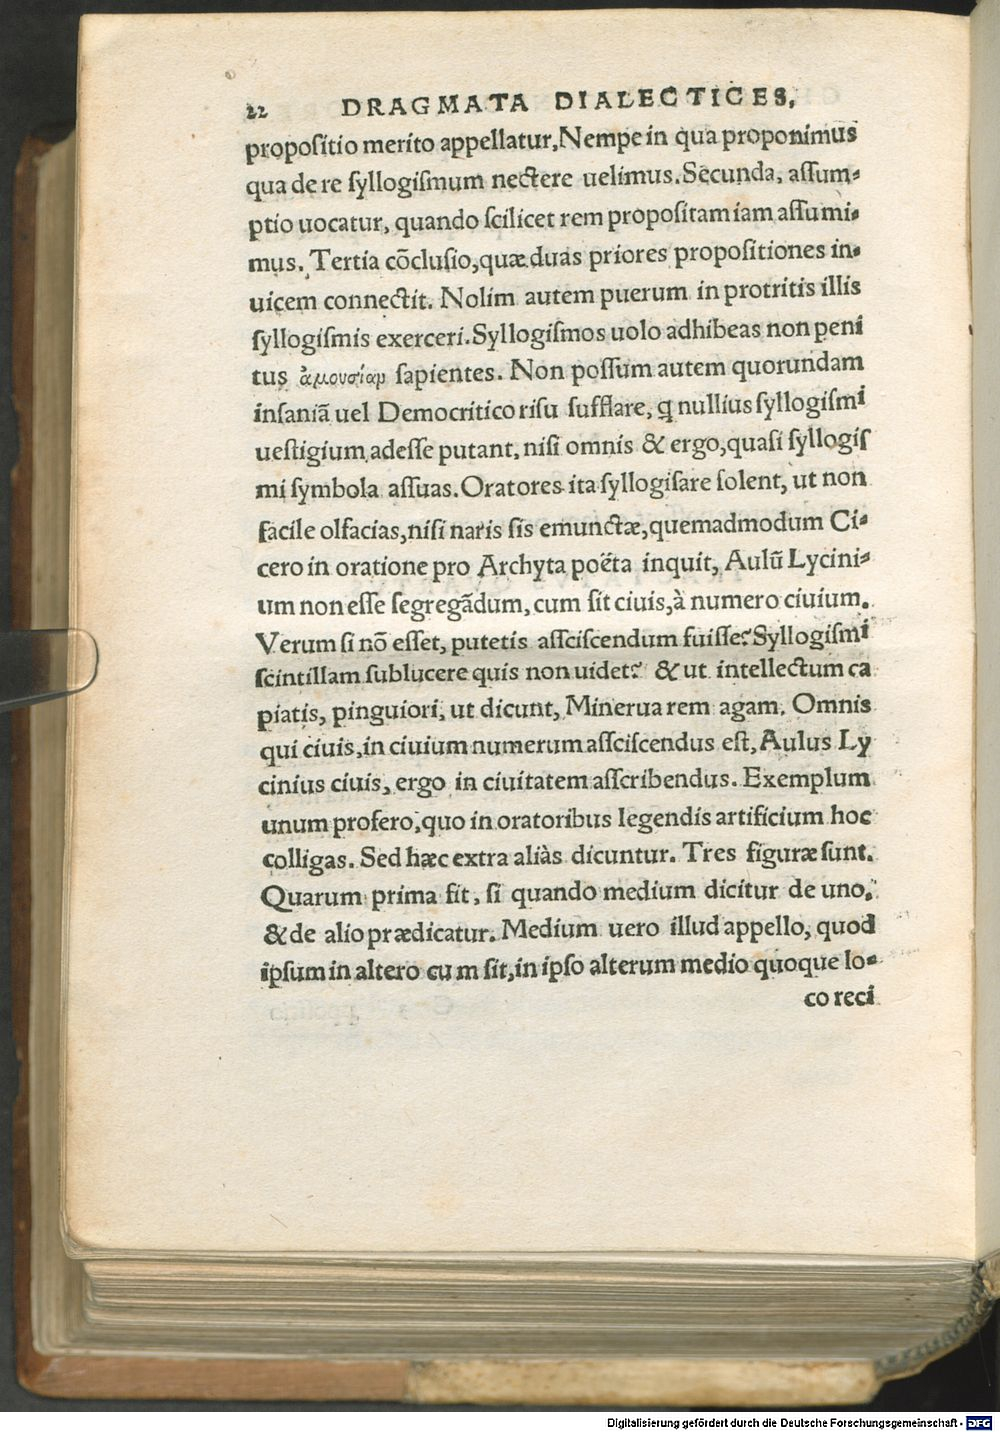 22 DRAGMATA DIALECTICES,
propoſitio merito appellatur, Nempe in qua proponimus
qua de re ſyllogiſmum nectere uelimus. Secunda, aſſum-
ptio uocatur, quando ſcilicet rem propoſitam iam aſſumi-
mus. Tertia cōcluſio, quæ duas priores propoſitiones in-
uicem connectit. Nolim autem puerum in protritis illis
ſyllogiſmis exerceri. Syllogiſmos uolo adhibeas non peni
tus ἀμουσίαμ ſapientes. Non poſſum autem quorundam
inſaniā uel Democritico riſu ſufflare, ꝙ nullius ſyllogiſmi
ueſtigium adeſſe putant, niſi omnis & ergo, quaſi ſyllogiſ
mi ſymbola aſſuas. Oratores ita ſyllogiſare ſolent, ut non
facile olfacias, niſi naris ſis emunctæ, quemadmodum Ci-
cero in oratione pro Archyta poëta inquit, Aulū Lycini-
um non eſſe ſegregādum, cum ſit ciuis, à numero ciuium.
Verum ſi nō eſſet, putetis aſſciſcendum fuiſſe? Syllogiſmi
ſcintillam ſublucere quis non uidet? & ut intellectum ca
piatis, pinguiori, ut dicunt, Minerua rem agam. Omnis
qui ciuis, in ciuium numerum aſſciſcendus eſt, Aulus Ly
cinius ciuis, ergo in ciuitatem aſſcribendus. Exemplum
unum profero, quo in oratoribus legendis artificium hoc
colligas. Sed hæc extra aliàs dicuntur. Tres figuræ ſunt.
Quarum prima fit, ſi quando medium dicitur de uno,
& de alio prædicatur. Medium uero illud appello, quod
ipſum in altero cum ſit, in ipſo alterum medio quoque lo-
co reci
Digitalisierung gefördert durch die Deutsche Forschungsgemeinschaft - DFG